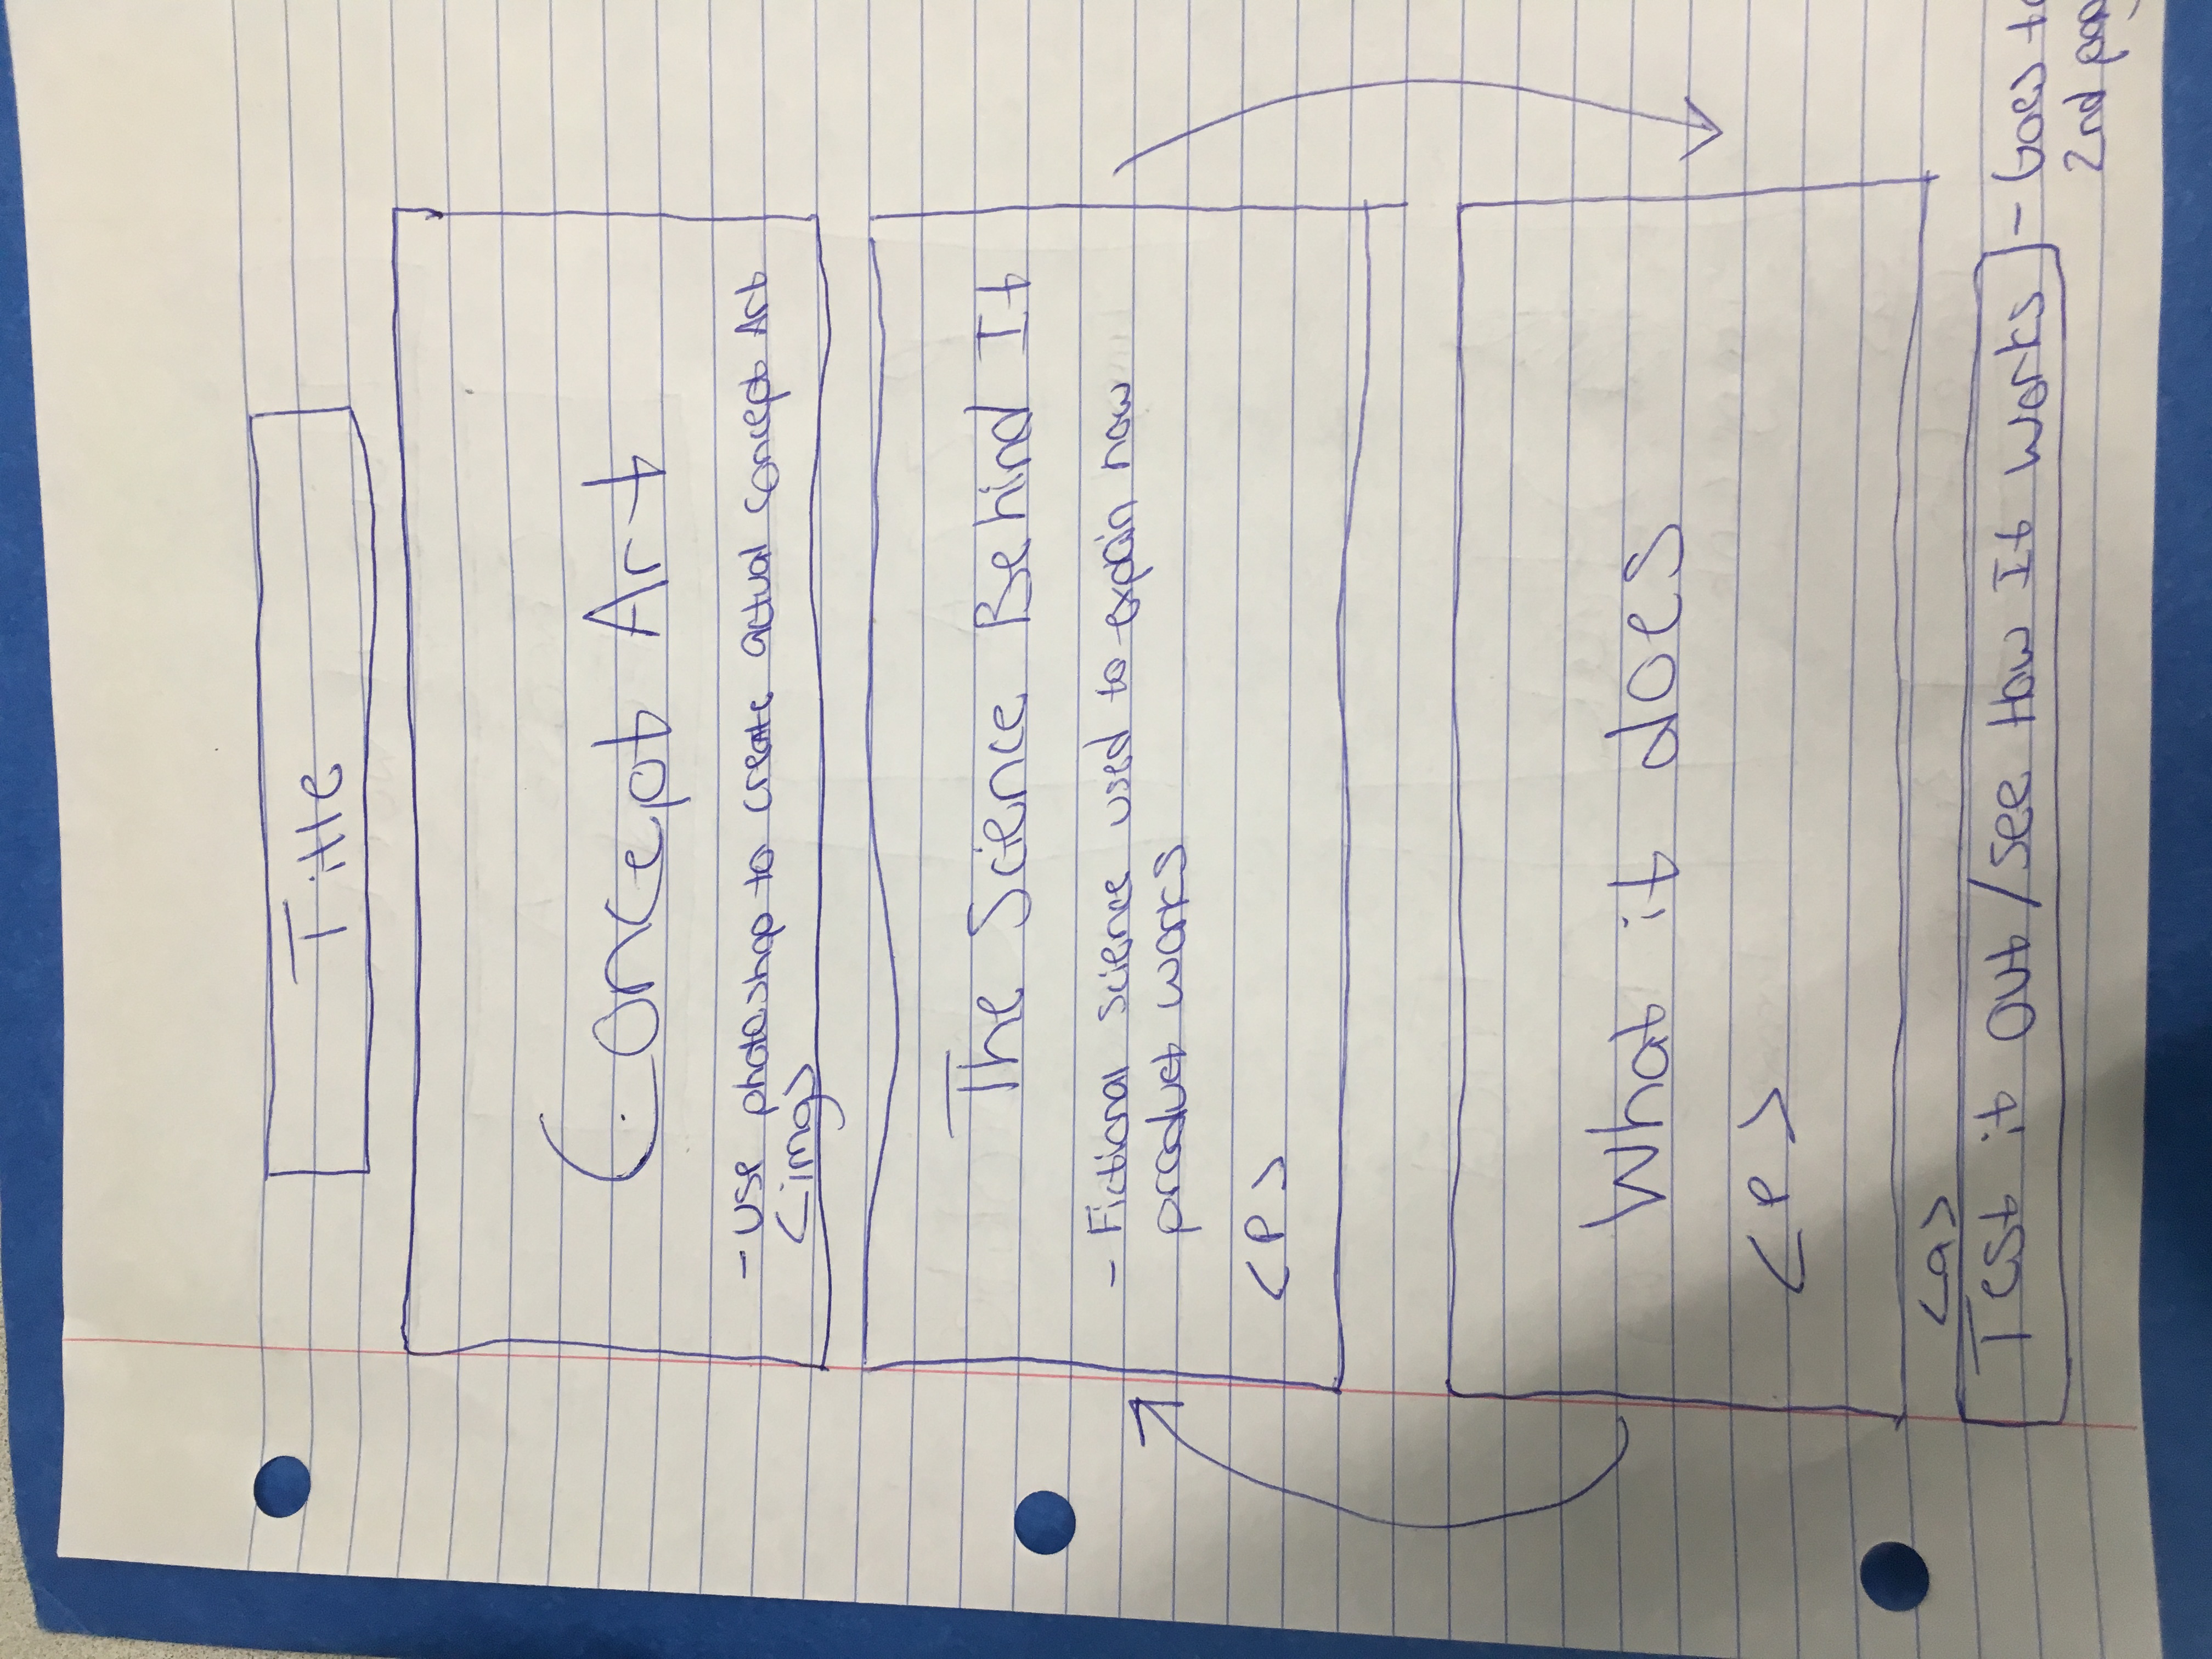 Title
Concept Art
- use photoshop to create actual concept Art
<img>
The Science Behind It
- Fictional science used to explain how
product works
<P>
What it does
<P>
<a>
Test it out / see How It Works - Goes to
2nd pag